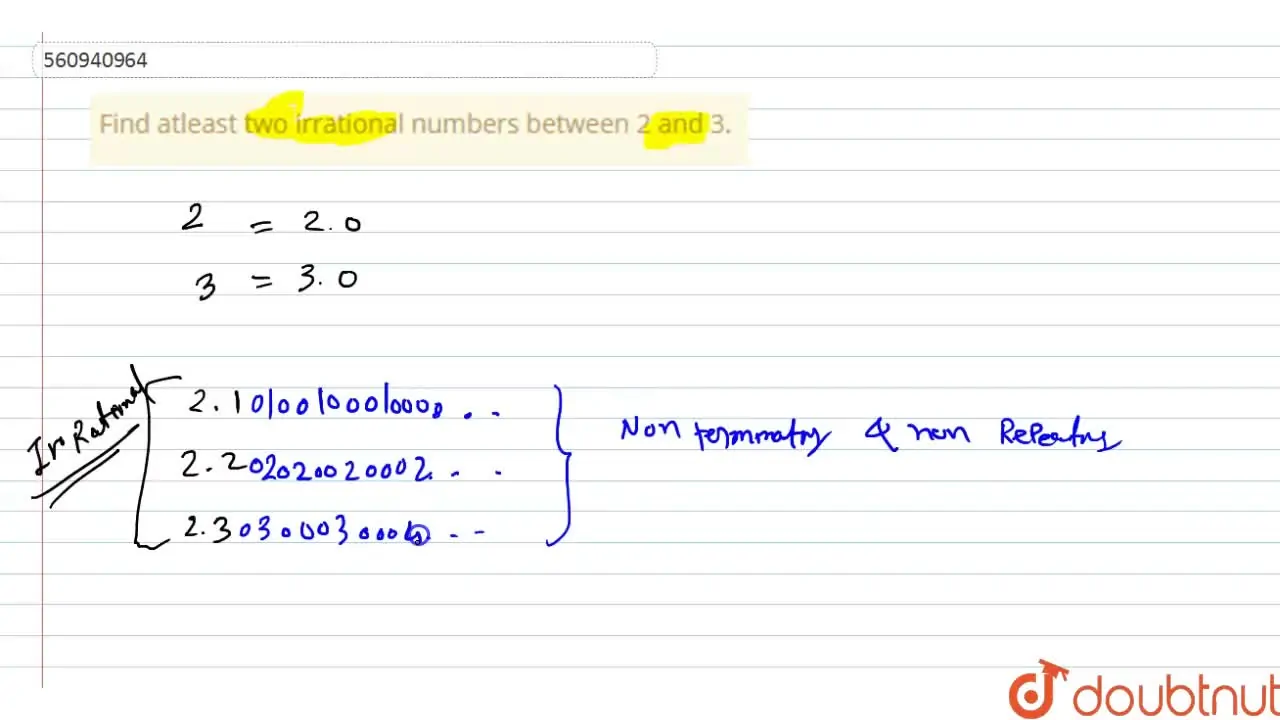 560940964
Find atleast two irrational numbers between 2 and 3.
2 = 2.0
3 = 3.0
Irrational
2.10100100010000. . .
2.202020020002. . .
2.30300030000. . .
Non terminating & non Repeating
doubtnut